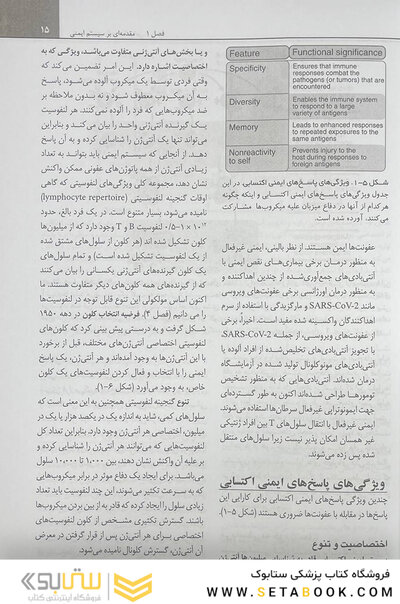 فصل ۱ . مقدمه‌ای بر سیستم ایمنی ۱۵
Feature Functional significance
Specificity Ensures that immune
responses combat the
pathogens (or tumors) that are
encountered
Diversity Enables the immune system
to respond to a large
variety of antigens
Memory Leads to enhanced responses
to repeated exposures to the
same antigens
Nonreactivity Prevents injury to the
to self host during responses to
foreign antigens
شکل ۵-۱. ویژگی‌های پاسخ‌های ایمنی اکتسابی. در این
جدول ویژگی‌های پاسخ‌های ایمنی اکتسابی و اینکه چگونه
هرکدام از آنها در دفاع میزبان علیه میکروب‌ها مشارکت
می‌کنند، آورده شده است.
عفونت‌ها ایمن هستند. از نظر بالینی، ایمنی غیرفعال
به منظور درمان برخی بیماری‌های نقص ایمنی با
آنتی‌بادی‌های جمع‌آوری‌شده از چندین اهداکننده و
به منظور درمان اورژانسی برخی عفونت‌های ویروسی
مانند SARS-CoV-2 و مارگزیدگی با استفاده از سرم
اهداکنندگان واکسینه شده مفید است. اخیراً، برخی
از عفونت‌های ویروسی، از جمله SARS-CoV-2
با تجویز آنتی‌بادی‌های تخلیص‌شده از افراد آلوده یا
آنتی‌بادی‌های مونوکلونال تولید شده در آزمایشگاه
درمان شده‌اند. آنتی‌بادی‌هایی که به منظور تشخیص
تومورها طراحی شده‌اند اکنون به طور گسترده‌ای
جهت ایمونوتراپی غیرفعال سرطان‌ها استفاده می‌شوند.
ایمنی غیرفعال با انتقال سلول‌های T بین افراد ژنتیکی
غیر همسان امکان پذیر نیست زیرا سلول‌های منتقل
شده پس زده می‌شوند.
ویژگی‌های پاسخ‌های ایمنی اکتسابی
چندین ویژگی پاسخ‌های ایمنی اکتسابی برای کارایی این
پاسخ‌ها در مقابله با عفونت‌ها ضروری هستند (شکل ۵-۱).
اختصاصیت و تنوع
و یا بخش‌های آنتی‌ژنی متفاوت می‌باشد، ویژگی که به
اختصاصیت اشاره دارد. این امر تضمین می‌کند که
وقتی فردی توسط یک میکروب آلوده می‌شود، پاسخ
به آن میکروب معطوف شود و نه بدون ملاحظه بر
ضد میکروب‌هایی که فرد را آلوده نمی‌کنند. هر لنفوسیت
یک گیرنده آنتی‌ژنی واحد را بیان می‌کند و بنابراین
می‌تواند تنها یک آنتی‌ژن را شناسایی کرده و به آن پاسخ
دهد. از آنجایی که سیستم ایمنی باید بتواند به تعداد
زیادی آنتی‌ژن از همه پاتوژن‌های عفونی ممکن واکنش
نشان دهد، مجموعه کلی ویژگی‌های لنفوسیتی که گاهی
اوقات گنجینه لنفوسیتی (lymphocyte repertoire)
نامیده می‌شود، بسیار متنوع است. در یک فرد بالغ، حدود
لنفوسیت B و T وجود دارد که از میلیون‌ها
کلون تشکیل شده اند (هر کلون از سلول‌های مشتق شده
از یک لنفوسیت تشکیل شده است) و تمام سلول‌های
یک کلون گیرنده‌های آنتی‌ژنی یکسانی را بیان می کنند
که از گیرنده‌های همه کلون‌های دیگر متفاوت هستند. ما
اکنون اساس مولکولی این تنوع قابل توجه در لنفوسیت‌ها
را می دانیم (فصل ۴). فرضیه انتخاب کلون در دهه ۱۹۵۰
شکل گرفت و به درستی پیش بینی کرد که کلون‌های
لنفوسیتی اختصاصی آنتی‌ژن‌های مختلف، قبل از برخورد
با این آنتی‌ژن‌ها به وجود آمده‌اند و هر آنتی‌ژن، یک پاسخ
ایمنی را با انتخاب و فعال کردن لنفوسیت‌های یک کلون
خاص، به وجود می‌آورد (شکل ۶-۱).
تنوع گنجینه لنفوسیتی همچنین به این معنی است که
سلول‌های کمی، شاید به اندازه یک در یکصد هزار یا یک در
میلیون، اختصاصی هر آنتی‌ژن وجود دارد. بنابراین تعداد کل
لنفوسیت‌هایی که می‌توانند هر آنتی‌ژن را شناسایی کرده و
بر علیه آن واکنش نشان دهند، بین ۱,۰۰۰ تا ۱۰,۰۰۰ سلول
می‌باشد. برای ایجاد یک دفاع موثر در برابر میکروب‌هایی
که به سرعت تکثیر می‌شوند، این لنفوسیت باید تعداد
زیادی سلول را ایجاد کرده که قادر به از بین بردن میکروب‌ها
باشند. گسترش تکثیری مشخص از کلون لنفوسیت‌های
اختصاصی برای هر آنتی‌ژن پس از قرار گرفتن در معرض
آن آنتی‌ژن، گسترش کلونال نامیده می‌شود.
فروشگاه کتاب پزشکی ستابوک
WWW.SETABOOK.COM
ستابوک
فروشگاه اینترنتی کتاب